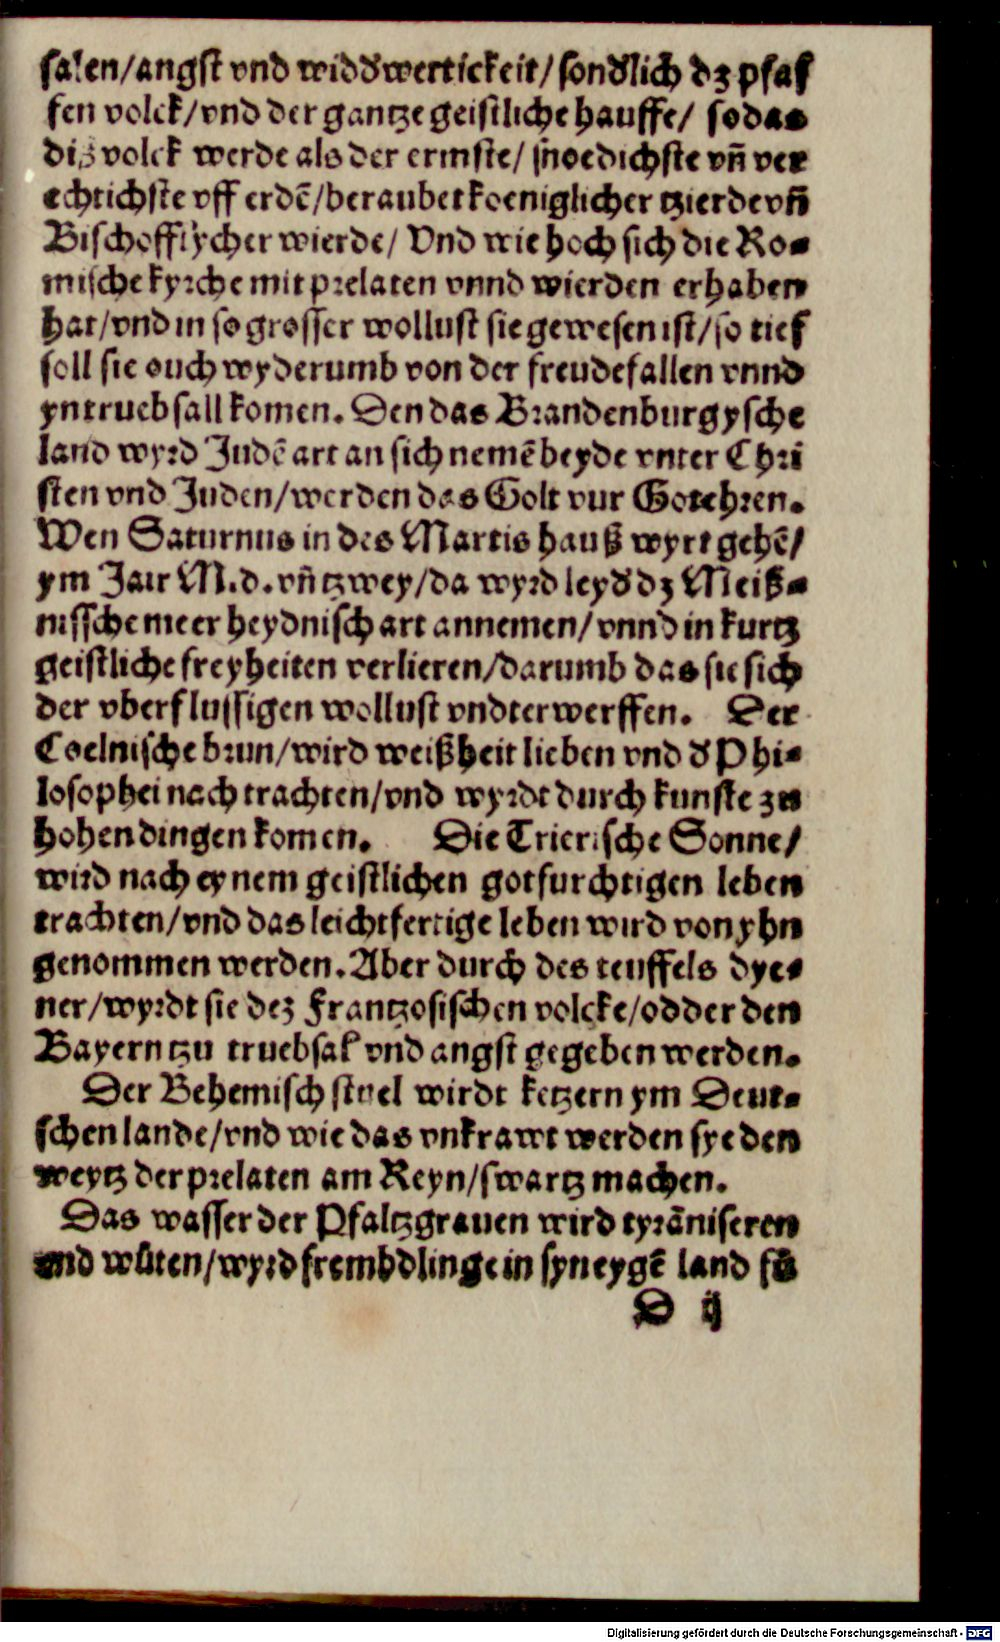 salen/angst vnd widd̕wertickeit/sond̕lich dz pfaf
fen volck/vnd der gantze geistliche hauffe/ so das
diz volck werde als der ermste/ snoedichste vn̄ ver
echtichste vff erdē/beraubet koeniglicher tzierde vn̄
Bischofflycher wierde/ Vnd wie hoch sich die Ro-
mische kyrche mit prelaten vnnd wierden erhaben
hat/vnd in so grosser wollust sie gewesen ist/so tief
soll sie ouch wyderumb von der freude fallen vnnd
yn truebsall komen. Den das Brandenburgysche
land wyrd Judē art an sich nemē beyde vnter Chri
sten vnd Juden/werden das Golt vur Got ehren.
Wen Saturnus in des Martis hauß wyrt gehē/
ym Jair M.d.vn̄ tzwey/da wyrd leyd̕ dz Meiß-
nissche meer heydnisch art annemen/vnnd in kurtz
geistliche freyheiten verlieren/darumb das sie sich
der vberflussigen wollust vndterwerffen. Der
Coelnische brun/wird weißheit lieben vnd d̕ Phi-
losophei nach trachten/vnd wyrdt durch kunste zu
hohen dingen komen. Die Trierische Sonne/
wird nach eynem geistlichen gotfurchtigen leben
trachten/vnd das leichtfertige leben wird von yhn
genommen werden. Aber durch des teuffels dye-
ner/wyrdt sie dez Frantzosischen volcke/odder den
Bayern tzu truebsal vnd angst gegeben werden.
Der Behemisch stuel wirdt ketzern ym Deut-
schen lande/vnd wie das vnkrawt werden sye den
weytz der prelaten am Reyn/swartz machen.
Das wasser der Pfaltzgrauen wird tyrāniseren
vnd wůten/wyrd frembdlinge in syn eygē land fů
D ij
Digitalisierung gefördert durch die Deutsche Forschungsgemeinschaft - DFG